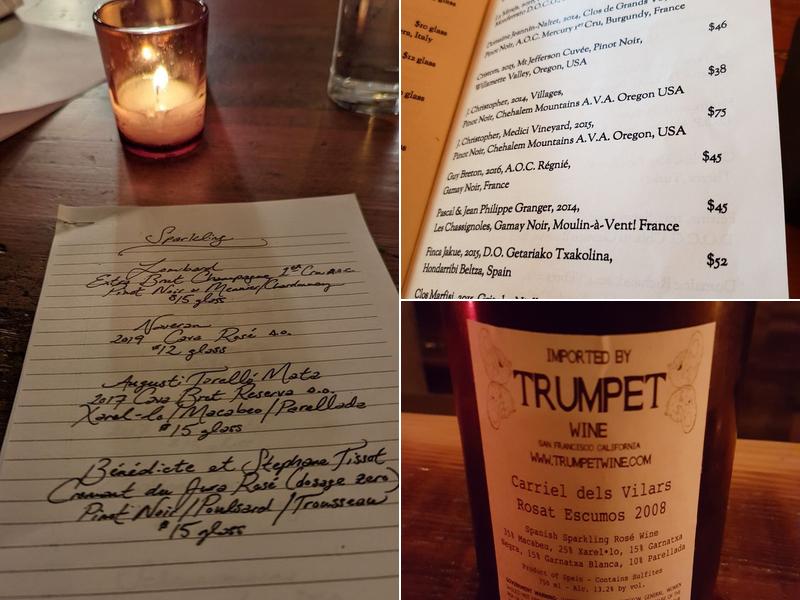 Sparkling
Lombard
Extra Brut Champagne 1er Cru AOC
Pinot Noir Meunier/Chardonnay
$15 glass
Naveran
2019 Cava Rosé D.O.
$12 glass
Augustí Torelló Mata
2017 Cava Brut Reserva D.O.
Xarel-lo/Macabeo/Parellada
$15 glass
Bénédicte et Stephane Tissot
Cremant du Jura Rosé (dosage zero)
Pinot Noir/Poulsard/Trousseau
$15 glass
$10 glass
Italy
$12 glass
glass
glass
Domaine Jeannin-Naltet, 2014, Clos de Grands
Pinot Noir, A.O.C. Mercury 1er Cru, Burgundy, France
$46
Cristom, 2015, Mt Jefferson Cuvée, Pinot Noir,
Willamette Valley, Oregon, USA
$38
J. Christopher, 2014, Villages,
Pinot Noir, Chehalem Mountains A.V.A. Oregon USA
$75
J. Christopher, Medici Vineyard, 2015,
Pinot Noir, Chehalem Mountains A.V.A. Oregon, USA
$45
Guy Breton, 2016, A.O.C. Régnié,
Gamay Noir, France
$45
Pascal & Jean Philippe Granger, 2014,
Les Chassignoles, Gamay Noir, Moulin-à-Vent! France
$52
Finca Jakue, 2015, D.O. Getariako Txakolina,
Hondarribi Beltza, Spain
Clos Marfisi, 2015,
IMPORTED BY
TRUMPET
WINE
SAN FRANCISCO CALIFORNIA
WWW.TRUMPETWINE.COM
Carriel dels Vilars
Rosat Escumos 2008
Spanish Sparkling Rosé Wine
35% Macabeu, 25% Xarel·lo, 15% Garnatxa
Negra, 15% Garnatxa Blanca, 10% Parellada
Product of Spain - Contains Sulfites
750 ml - Alc. 13.2% by vol.
GOVERNMENT WARNING: